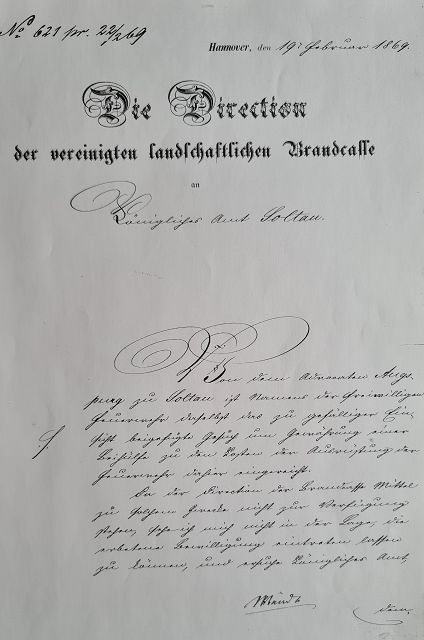 No 621 pr. 22/2 69
Hannover, den 19. Februar 1869.
Die Direction
der vereinigten landschaftlichen Brandcasse
an
Königliches Amt Soltau.
Von dem Advocaten Augs-
purg zu Soltau ist Namens der freiwilligen
Feuerwehr daselbst das zu gefälliger Ein-
sicht beigefügte Gesuch um Gewährung einer
Beihülfe zu den Kosten der Ausrüstung der
Feuerwehr daher eingereicht.
Da der Direction der Brandcasse Mittel
zu solchem Zwecke nicht zur Verfügung
stehen, sehe ich mich nicht in der Lage, die
erbetene Bewilligung eintreten lassen
zu können, und ersuche Königliches Amt
dem